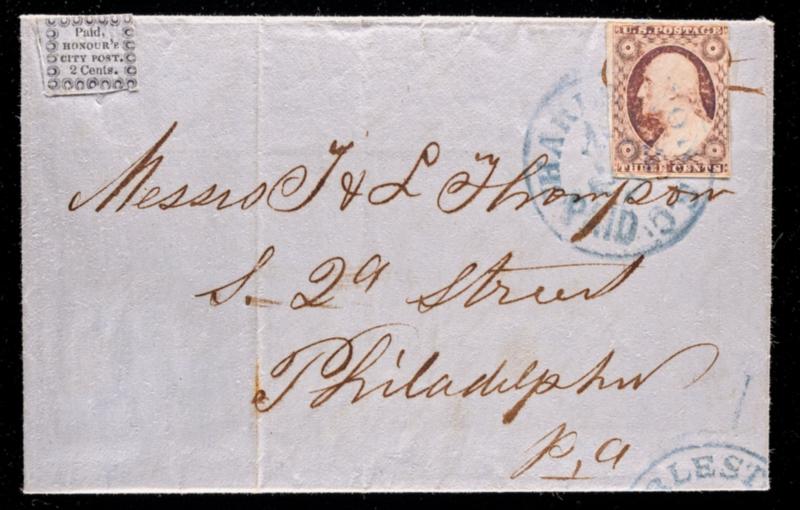 Paid,
HONOUR'S
CITY POST.
2 Cents.
U.S. POSTAGE
THREE CENTS
PAID
Messrs J & L Thompson
S. 2d Street
Philadelphia
P,a
RLEST